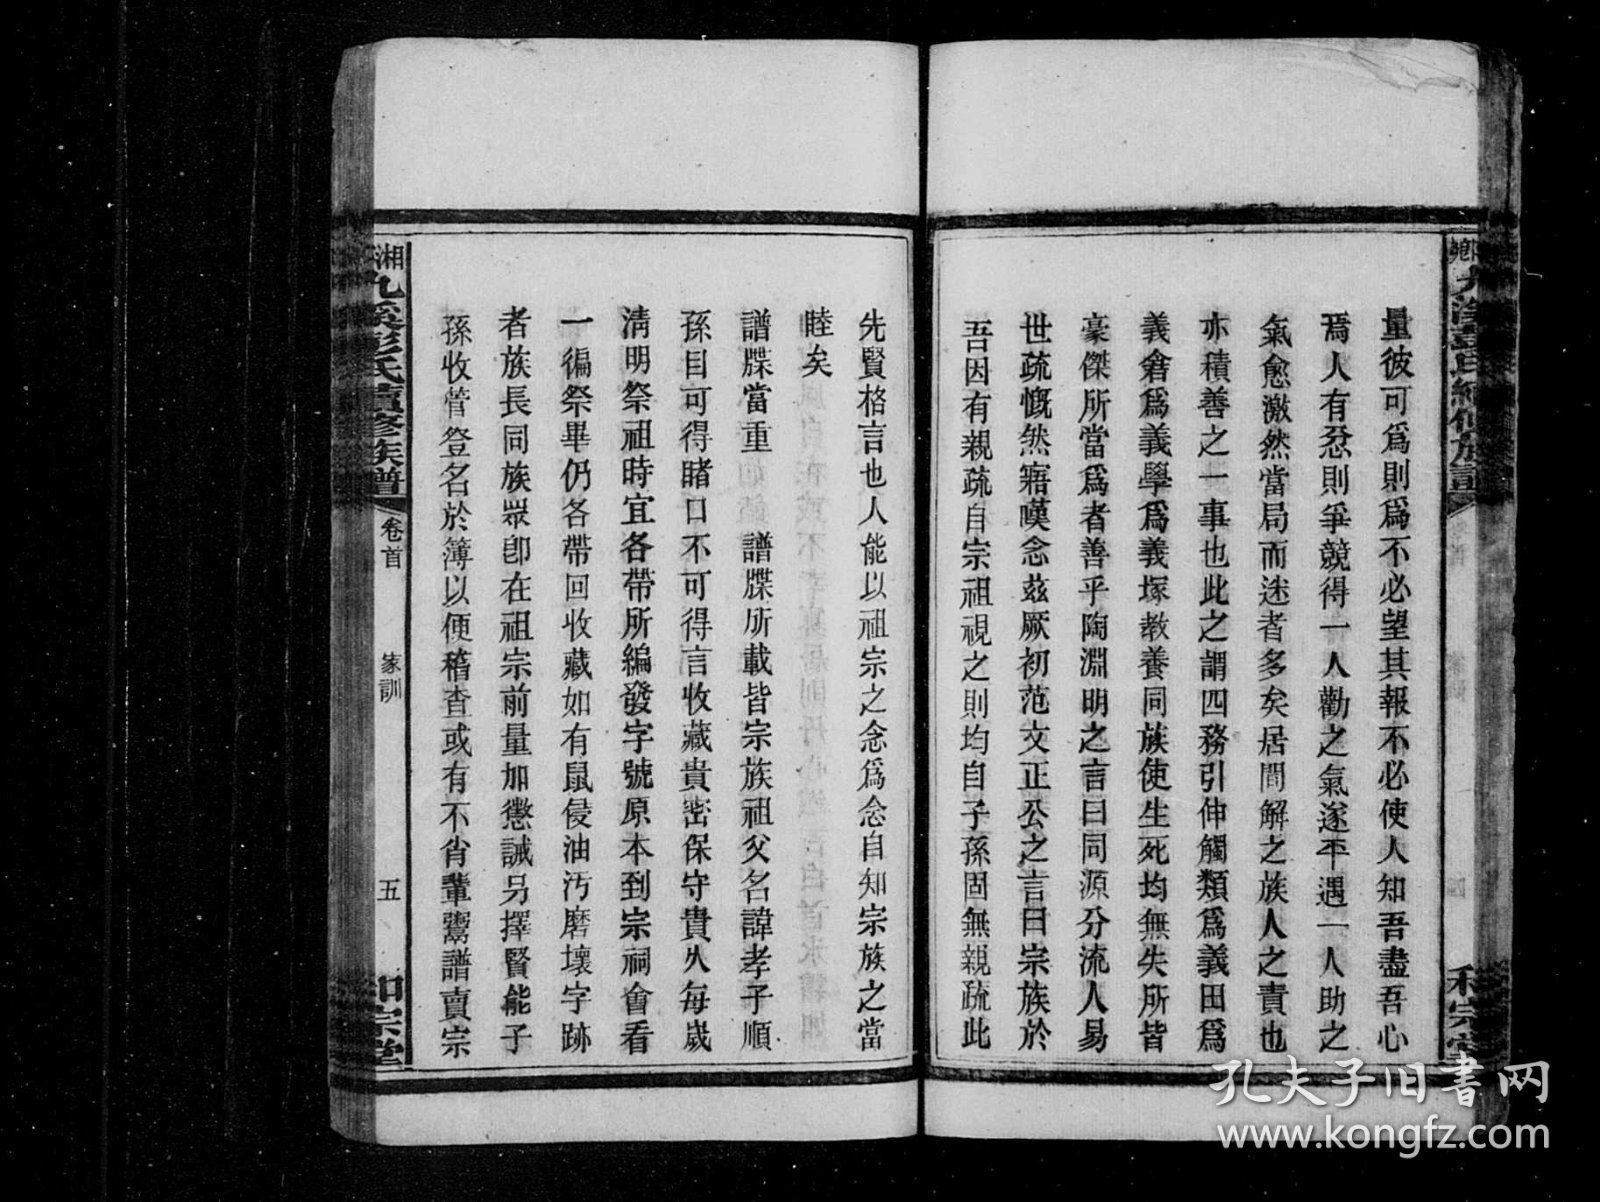 量彼可爲則爲不必望其報不必使人知吾盡吾心
焉人有忿則爭競得一人勸之氣遂平遇一人助之
氣愈激然當局而迷者多矣居間解之族人之責也
亦積善之一事也此之謂四務引伸觸類爲義田爲
義倉爲義學爲義塚教養同族使生死均無失所皆
豪傑所當爲者善乎陶淵明之言曰同源分流人易
世疏慨然寤嘆念茲厥初范文正公之言曰宗族於
吾因有親疏自宗祖視之則均自子孫固無親疏此
先賢格言也人能以祖宗之念爲念自知宗族之當
睦矣
譜牒當重 譜牒所載皆宗族祖父名諱孝子順
孫目可得睹口不可得言收藏貴密保守貴久每歲
淸明祭祖時宜各帶所編發字號原本到宗祠會看
一徧祭畢仍各帶回收藏如有鼠侵油污磨壞字跡
者族長同族眾卽在祖宗前量加懲誡另擇賢能子
孫收管登名於簿以便稽查或有不肖輩鬻譜賣宗
湘九溪彭氏續修族譜 卷首 家訓 五 和宗堂
孔夫子旧書网
www.kongfz.com